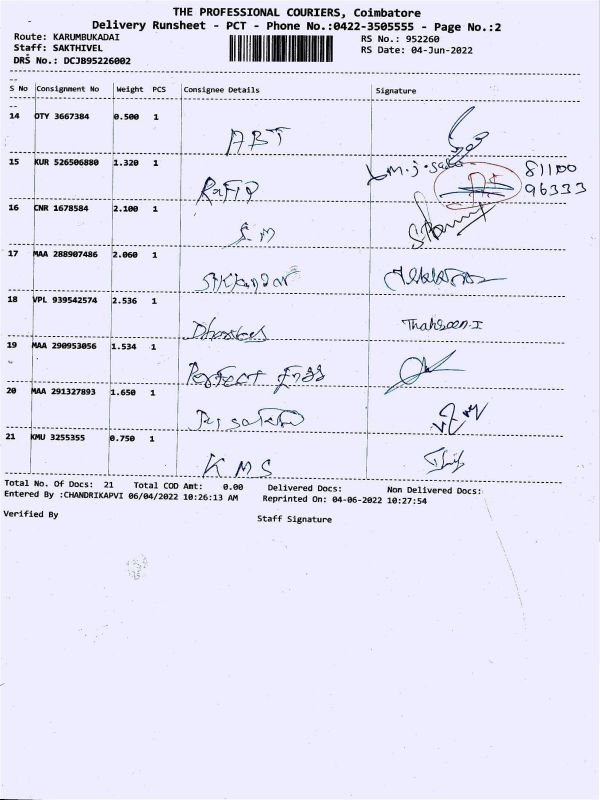 THE PROFESSIONAL COURIERS, Coimbatore
Delivery Runsheet - PCT - Phone No.:0422-3505555 - Page No.:2
Route: KARUMBUKADAI RS No.: 952260
Staff: SAKTHIVEL RS Date: 04-Jun-2022
DRS No.: DCJB95226002
S No Consignment No Weight PCS Consignee Details Signature
14 OTY 3667384 0.500 1 ABT
15 KUR 526506880 1.320 1 Rafiq 81100
96333
16 CNR 1678584 2.100 1
17 MAA 288907486 2.060 1
18 VPL 939542574 2.536 1 Thahseen.I
19 MAA 290953056 1.534 1 Perfect
20 MAA 291327893 1.650 1
21 KMU 3255355 0.750 1 KMS
Total No. Of Docs: 21 Total COD Amt: 0.00 Delivered Docs: Non Delivered Docs:
Entered By :CHANDRIKAPVI 06/04/2022 10:26:13 AM Reprinted On: 04-06-2022 10:27:54
Verified By Staff Signature